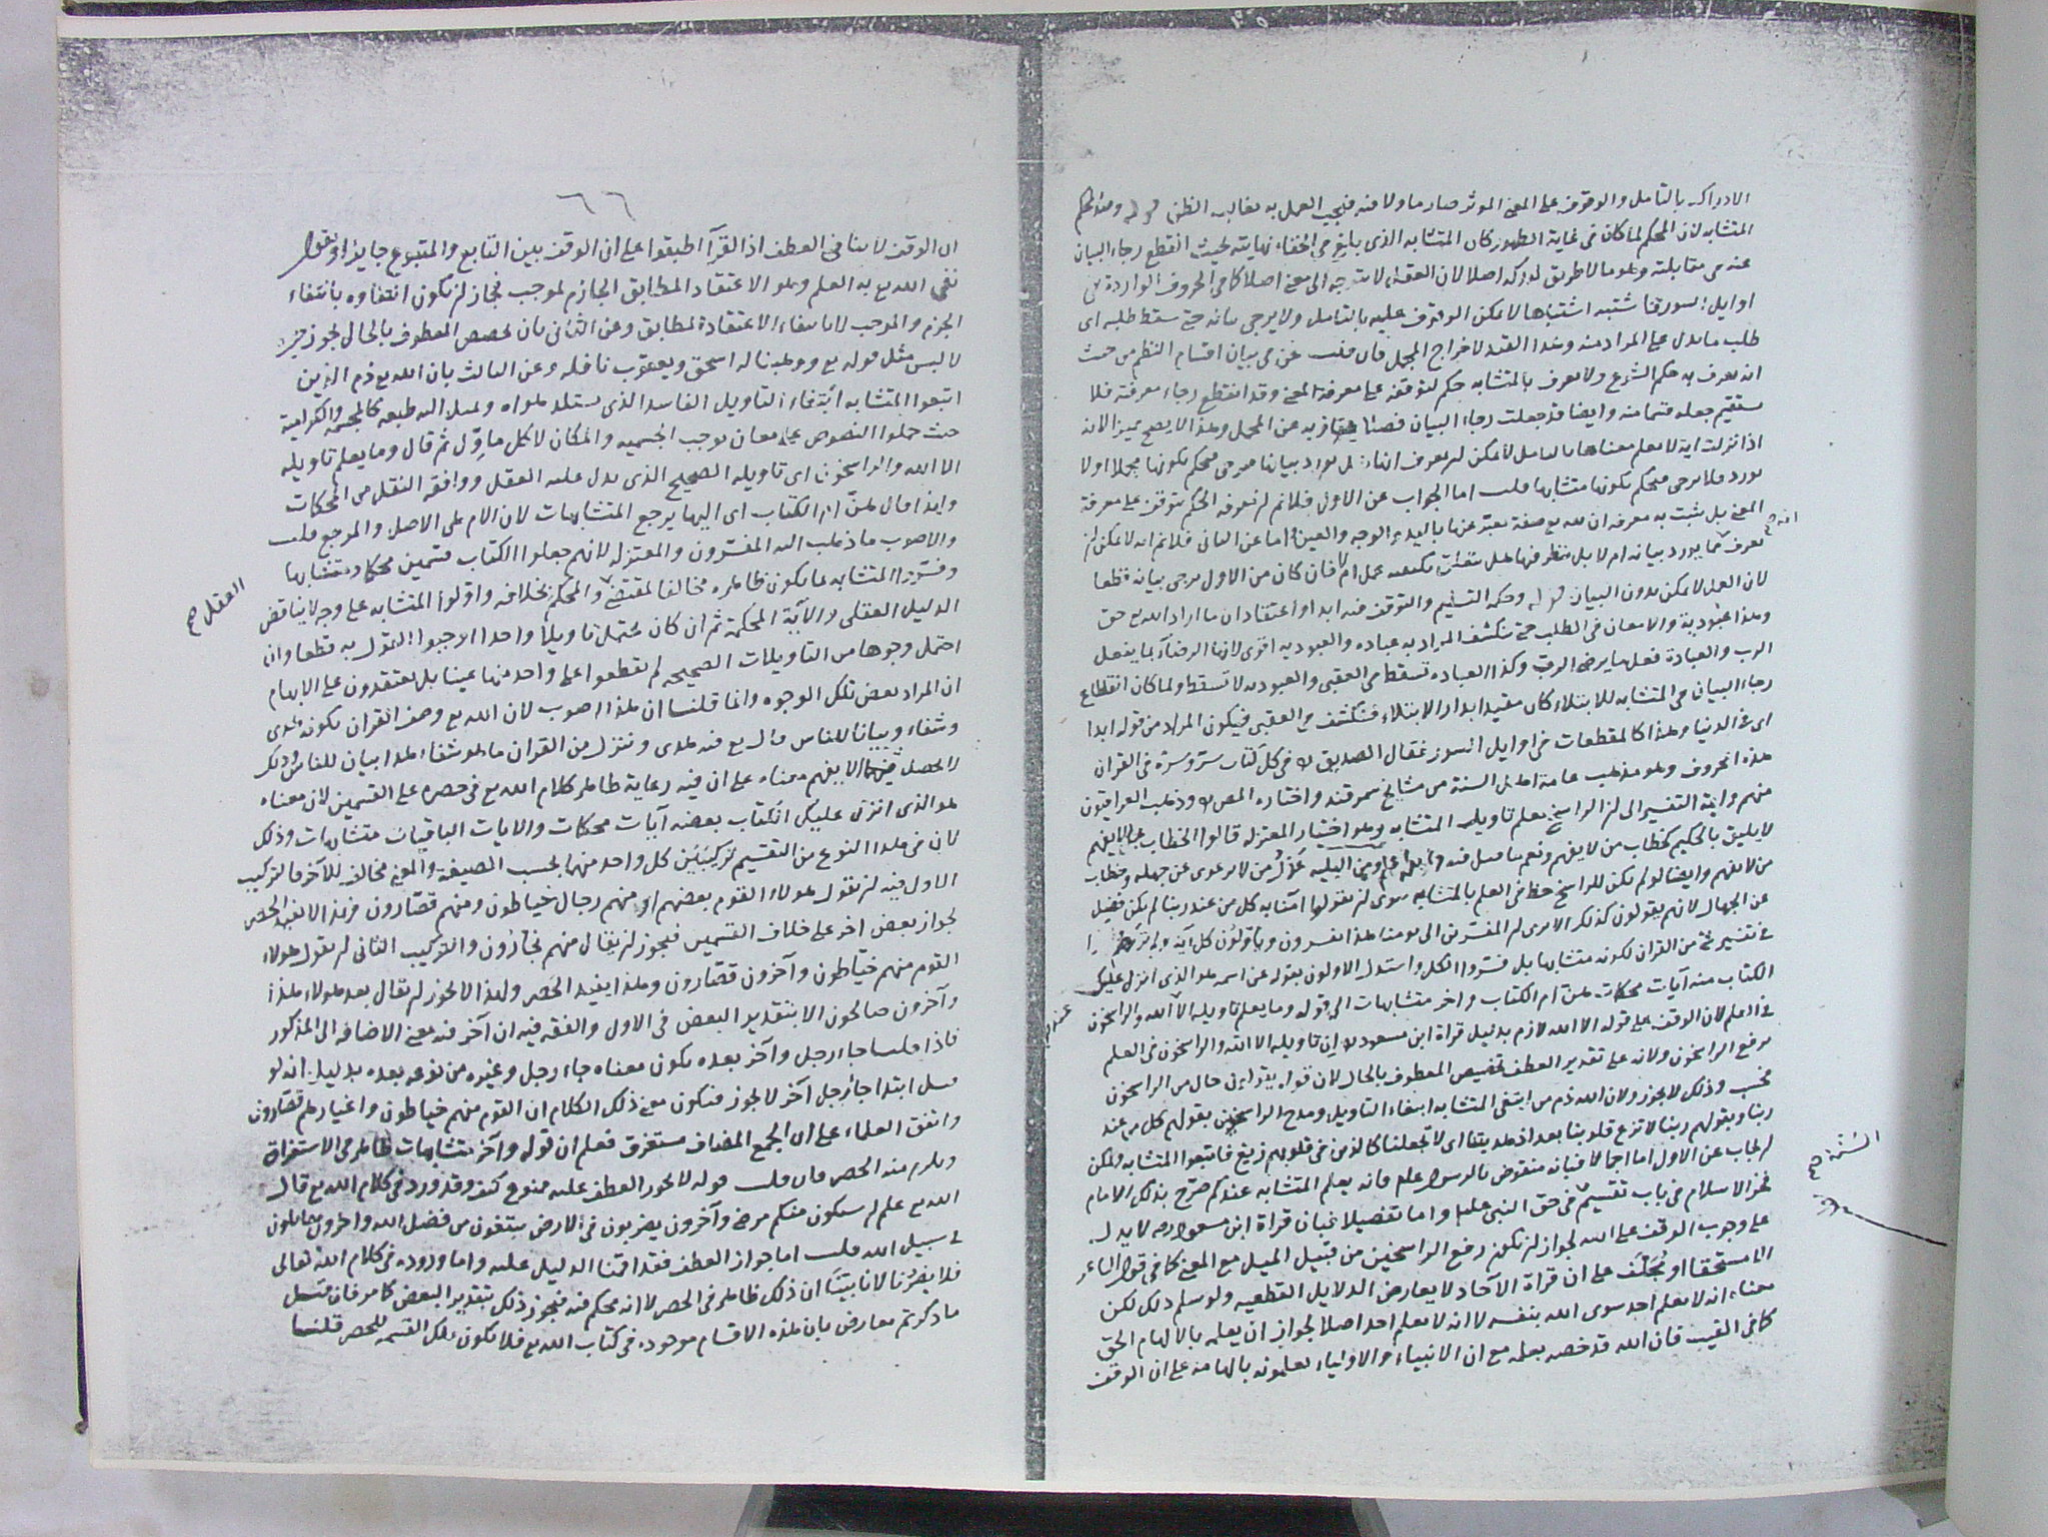 الادراك بالتامل والوقوف على المعنى الموثر صار ماولا منه فيجب العمل به بغالب الظن قوله وضد المحكم
المتشابه لان المحكم لما كان فى غاية الظهور كان المتشابه الذى بالغ فى الخفاء نهايته بحيث انقطع رجاء البيان
عنه فى مقابلته وهو ما لا طريق لدركه اصلا لان العقول لا يتوجه الى معنى اصلا كما فى الحروف الواردة فى
اوايل السور فما شتبه اشتباها لا يمكن الوقوف عليه بالتامل ولا يرجى بيانه حتى سقط طلبه اى
طلب ما يدل على المراد منه وهذا القيد لاخراج المجمل فان قلت نحن فى بيان اقسام النظم من حيث
انه يعرف به حكم الشرع ولا يعرف بالمتشابه حكم لتوقفه على معرفة المعنى وقد انقطع رجاء معرفته فلا
يستقيم جعله قسما منه وايضا قد جعلت رجاء البيان فصلا يمتاز به عن المجمل وهذا لا يصلح مميزا لانه
اذا نزلت اية لا يعلم معناها بالتامل لا يمكن ان يعرف انها يورد بيانها فيرجى فيحكم بكونها مجملا اولا
يورد فلا يرجى فيحكم بكونها متشابها قلت اما الجواب عن الاول فلا نم ان معرفة الحكم يتوقف على معرفة
المعنى بل يثبت به معرفة ان لله تع صفة يعبر عنها باليد والوجه والعين واما عن الثانى فلا نم انه لا يمكن ان
انه صح
يعرف يورد بيانه ام لا بل ينظر فيها هل يتعلق عمل ام لا فان كان من الاول يرجى بيانه قطعا
لان العمل لا يمكن بدون البيان قوله وحكمه التسليم والتوقف فيه ابدا واعتقاد ان ما اراد الله تع حق
وهذا عبودية والامعان فى الطلب حتى ينكشف المراد به عبادة والعبودية اقوى لانها الرضاء بما يفعل
الرب والعبادة فعل ما يرضى الرب وكذا العبادة تسقط فى العقبى والعبودية لا تسقط ولما كان انقطاع
رجاء البيان فى المتشابه للابتلاء كان مقيدا بدار الابتلاء فينكشف فى العقبى فيكون المراد من قوله ابدا
اى فى الدنيا وهذا كالمقطعات فى اوايل السور فقال الصديق رض فى كل كتاب سر وسره فى القران
هذه الحروف وهو مذهب عامة اهل السنة من مشايخ سمرقند واختاره المص ره وذهب العراقيون
منهم وايمة التفسير الى ان الراسخ يعلم تاويل المتشابه وهو اختيار المعتزله قالوا الخطاب بما لا يفهم
لا يليق بالحكيم كخطاب من لا يفهم ونعم ما قيل فيه ومن البلية عذل من لا يرعوى عن جهله وخطاب
من لا يفهم وايضا لو لم يكن للراسخ حظ فى العلم بالمتشابه سوى ان يقولوا امنا به كل من عند ربنا لم يكن فضل
عن الجهال لانهم يقولون كذلك الا يرى ان المفسرين الى يومنا هذا يفسرون وياولون كل اية ولم
فى تفسير شئ من القران لكونه متشابها بل فسروا الكل واستدل الاولون بقوله عز اسمه هو الذى انزل عليك
الكتاب منه آيات محكمات هن ام الكتاب واخر متشابهات الى قوله وما يعلم تاويله الا الله والراسخون
فى العلم لان الوقف على قوله الا الله لازم بدليل قراة ابن مسعود رض ان تاويله الا عند الله والراسخون فى العلم
برفع الراسخون ولانه على تقدير العطف تخصيص المعطوف بالحال لان قوله يقولون حال من الراسخون
فحسب وذلك لا يجوز ولان الله ذم من ابتغى المتشابه ابتغاء التاويل ومدح الراسخين بقولهم كل من عند
ربنا وبقولهم ربنا لا تزغ قلوبنا بعد اذ هديتنا اى لا تجعلنا كالذين فى قلوبهم زيغ فاتبعوا المتشابه ويمكن
ان يجاب عن الاول اما اجمالا فبانه منقوض بالرسول علم فانه يعلم المتشابه عندكم صرح بذلك الامام
السنة صح
فخر الاسلام فى باب تقسيم فى حق النبى عليلم واما تفصيلا فبان قراة ابن مسعود رض لا يدل
على وجوب الوقف على الله لجواز ان يكون رفع الراسخين من قبيل الميل مع المعنى كما فى قول الشاعر
الا مسحتا او مجلف على ان قراة الآحاد لا يعارض الدلايل القطعيه ولو سلم ذلك لكن
معناه انه لا يعلم احد سوى الله بنفسه لا انه لا يعلم احد اصلا لجواز ان يعلمه بالالهام الحق
كما فى الغيب فان الله قد خصه بعلمه مع ان الانبياء والاولياء يعلمونه بالهامه على ان الوقف
٦٦
ان الوقف لا ينافى العطف اذ القراء اطبقوا على ان الوقف بين التابع والمتبوع جايز او يقول
نفى الله تع به العلم وهو الاعتقاد المطابق الجازم لموجب فجاز ان يكون انتفاوه بانتفاء
الجزم والموجب لا بانتفاء الاعتقاد المطابق وعن الثانى بان تخصيص المعطوف بالحال يجوز حيث
لا لبس مثل قوله تع ووهبنا له اسحق ويعقوب نافلة وعن الثالث بان الله تع ذم الذين
اتبعوا المتشابه ابتغاء التاويل الفاسد الذى يستلذ هواه ويميل اليه طبعه كالمجسمة والكرامية
حيث حملوا النصوص على معان توجب الجسمية والمكان لا كل ماول ثم قال وما يعلم تاويله
الا الله والراسخون اى تاويله الصحيح الذى يدل عليه العقل ووافقه النقل من المحكمات
ولهذا قال هن ام الكتاب اى اليها يرجع المتشابهات لان الام هى الاصل والمرجع قلت
والاصوب ما ذهب اليه المفسرون والمعتزله لانهم جعلوا الكتاب قسمين محكما ومتشابها
وفسروا المتشابه بما يكون ظاهره مخالفا لمقتضى والمحكم بخلافه واولوا المتشابه على وجه لا يناقض
العقل صح
الدليل العقلى والآية المحكمة ثم ان كان يحتمل تاويلا واحدا لا وجبوا القول به قطعا وان
احتمل وجوها من التاويلات الصحيحة لم يقطعوا على واحد منها عينا بل يعتقدون على الابهام
ان المراد بعض تلك الوجوه وانما قلنا ان هذا اصوب لان الله تع وصف القران بكونه هدى
وشفاء وبيانا للناس قال تع فيه هدى وننزل من القران ما هو شفاء هذا بيان للناس وذلك
لا يحصل فيما لا يفهم معناه على ان فيه رعاية ظاهر كلام الله تع فى حصره على القسمين لان معناه
هو الذى انزل عليك الكتاب بعضه آيات محكمات والايات الباقيات متشابهات وذلك
لان فى هذا النوع من التقسيم تركيبين كل واحد منهما بحسب الصيغة والمعنى مخالف للآخر فالتركيب
الاول فيه ان تقول هولاء القوم بعضهم او منهم رجال خياطون ومنهم قصارون وهذا لا يفيد الحصر
لجواز بعض اخر على خلاف القسمين فيجوز ان يقال منهم نجارون والتركيب الثانى ان يقول هولاء
القوم منهم خياطون وآخرون قصارون وهذا يفيد الحصر ولهذا لا يجوز ان يقال بعد هولاء هذا
وآخرون صالحون الا بتقدير البعض فى الاول والفقه فيه ان آخر فيه معنى الاضافة الى المذكور
فاذا قلت جاء رجل وآخر بعده يكون معناه جاء رجل وغيره من نوعه بعده بدليل انه لو
قيل ابتداء جاء رجل آخر لا يجوز فيكون معنى ذلك الكلام ان القوم منهم خياطون واغيارهم قصارون
واتفق العلماء على ان الجمع المضاف مستغرق فعلم ان قوله وآخر متشابهات ظاهر فى الاستغراق
ويلزم منه الحصر فان قلت قوله لا يجوز العطف عليه ممنوع كيف وقد ورد فى كلام الله تع قال
الله تع علم ان سيكون منكم مرضى وآخرون يضربون فى الارض يبتغون من فضل الله واخرون يقاتلون
فى سبيل الله قلت اما جواز العطف فقد اقمنا الدليل عليه واما وروده فى كلام الله تعالى
فلا يضرنا لانا بينا ان ذلك ظاهر فى الحصر لا انه محكم فيه فيجوز ذلك بتقدير البعض كما مر فان قيل
ما ذكرتم معارض بان هذه الاقسام موجوده فى كتاب الله تع فلا يكون تلك القسمة للحصر قلنا